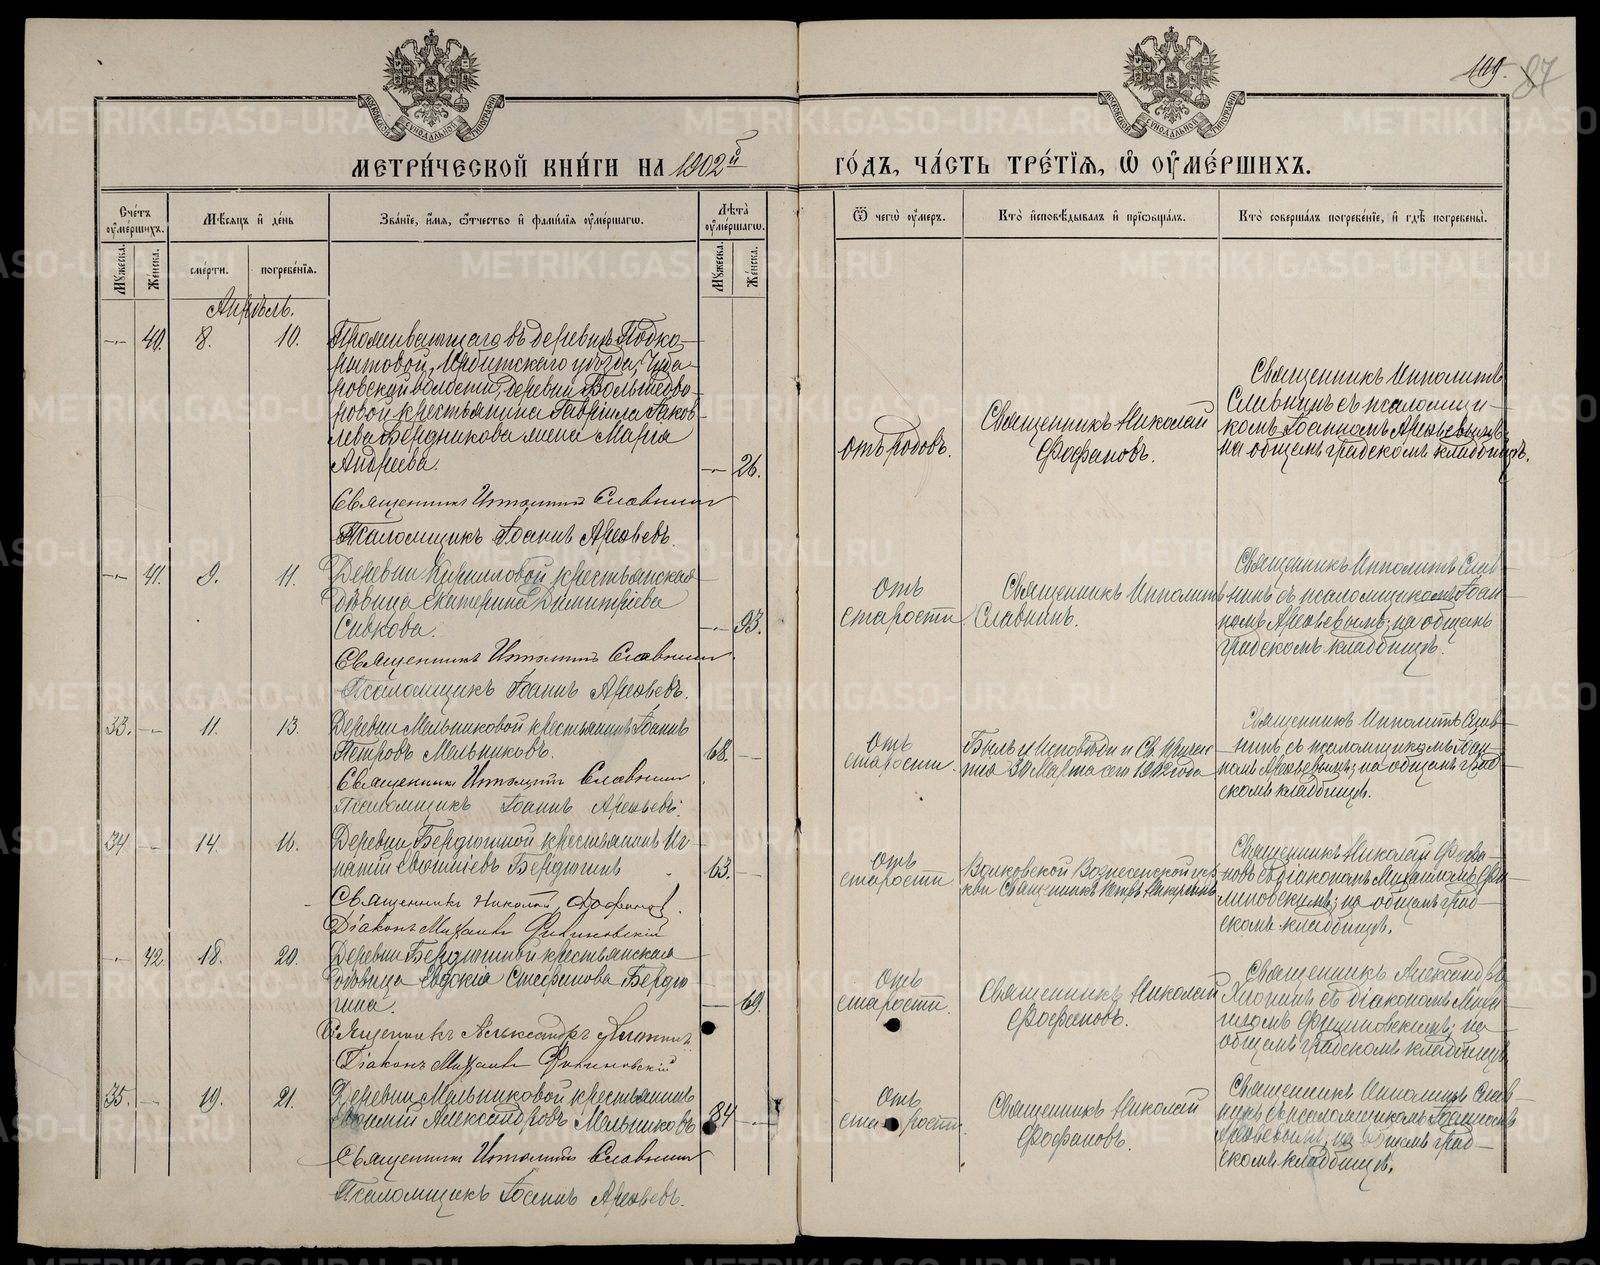 109. 87
МЕТРИ́ЧЕСКОЙ КНИ́ГИ НА 1902й ГО́ДЪ, ЧА́СТЬ ТРЕ́ТІЯ, Ѽ ОУ҆МЕ́РШИХЪ.
Сче́тъ оу҆ме́ршихъ.
Мꙋ́жеска.
Же́нска.
Мѣ́сяцъ и҆ де́нь
сме́рти.
погребе́нїѧ.
Зва́нїе, и҆́мѧ, ѻ҆́тчество и҆ фами́лїѧ оу҆ме́ршагѡ.
Лѣ́та̀ оу҆ме́ршагѡ.
Мꙋ́жеска.
Же́нска.
Ѿ чегѡ̀ оу҆́меръ.
Кто̀ и҆сповѣ́дывалъ и҆ прїѡбща́лъ.
Кто̀ соверша́лъ погребе́нїе, и҆ гдѣ̀ погребены̀.
Апрѣль.
40. 8. 10.
Проживающаго въ деревнѣ Подко-
рытовой, Ирбитскаго уѣзда, Чуба-
ровской волости, деревни
крестьянина Гавріила Яков-
лева Бердникова жена Марѳа
Андреева.
26.
Священникъ Ипполитъ Славнинъ
Псаломщикъ Іоаннъ Арефьевъ.
отъ родовъ.
Священникъ Николай
Фофановъ.
Священникъ Ипполитъ
Славнинъ съ псаломщи-
комъ Іоанномъ Арефьевымъ,
на общемъ градскомъ кладбищѣ.
41. 9. 11.
Деревни Кирилловой крестьянская
дѣвица Екатерина Димитріева
Сивкова.
93.
Священникъ Ипполитъ Славнинъ
Псаломщикъ Іоаннъ Арефьевъ.
отъ
старости
Священникъ Ипполитъ
Славнинъ.
Священникъ Ипполитъ Слав-
нинъ съ псаломщикомъ Іоан-
номъ Арефьевымъ; на общемъ
градскомъ кладбищѣ.
33. 11. 13.
Деревни Мельниковой крестьянинъ Іоаннъ
Петровъ Мельниковъ.
68.
Священникъ Ипполитъ Славнинъ
Псаломщикъ Іоаннъ Арефьевъ.
отъ
старости.
Былъ у Исповѣди и Св. Причас-
тія 30 Марта сего 1902 года
Священникъ Ипполитъ Слав-
нинъ съ псаломщикомъ Іоан-
номъ Арефьевымъ; на общемъ град-
скомъ кладбищѣ.
34. 14. 16.
Деревни Бердюгиной крестьянинъ Иг-
натій Бердюгинъ
63.
Священникъ Николай Фофановъ.
Діаконъ Михаилъ Филиновскій
отъ
старости
Волковской Вознесенской цер-
кви Священникъ Петръ
Священникъ Николай Фофа-
новъ съ діакономъ Михаиломъ Фи-
линовскимъ; на общемъ град-
скомъ кладбищѣ.
42. 18. 20.
Деревни Бердюгиной крестьянская
дѣвица Евдокія Стефанова Бердю-
гина.
69.
Священникъ Александръ
Діаконъ Михаилъ Филиновскій
отъ
старости.
Священникъ Николай
Фофановъ.
Священникъ Александръ
съ діакономъ Миха-
иломъ Филиновскимъ; на
общемъ градскомъ кладбищѣ
35. 19. 21.
Деревни Мельниковой крестьянинъ
Александровъ Мельниковъ
84
Священникъ Ипполитъ Славнинъ
Псаломщикъ Іоаннъ Арефьевъ.
отъ
старости.
Священникъ Николай
Фофановъ.
Священникъ Ипполитъ Слав-
нинъ съ псаломщикомъ Іоанномъ
Арефьевымъ; на общемъ град-
скомъ кладбищѣ.
METRIKI.GASO-URAL.RU